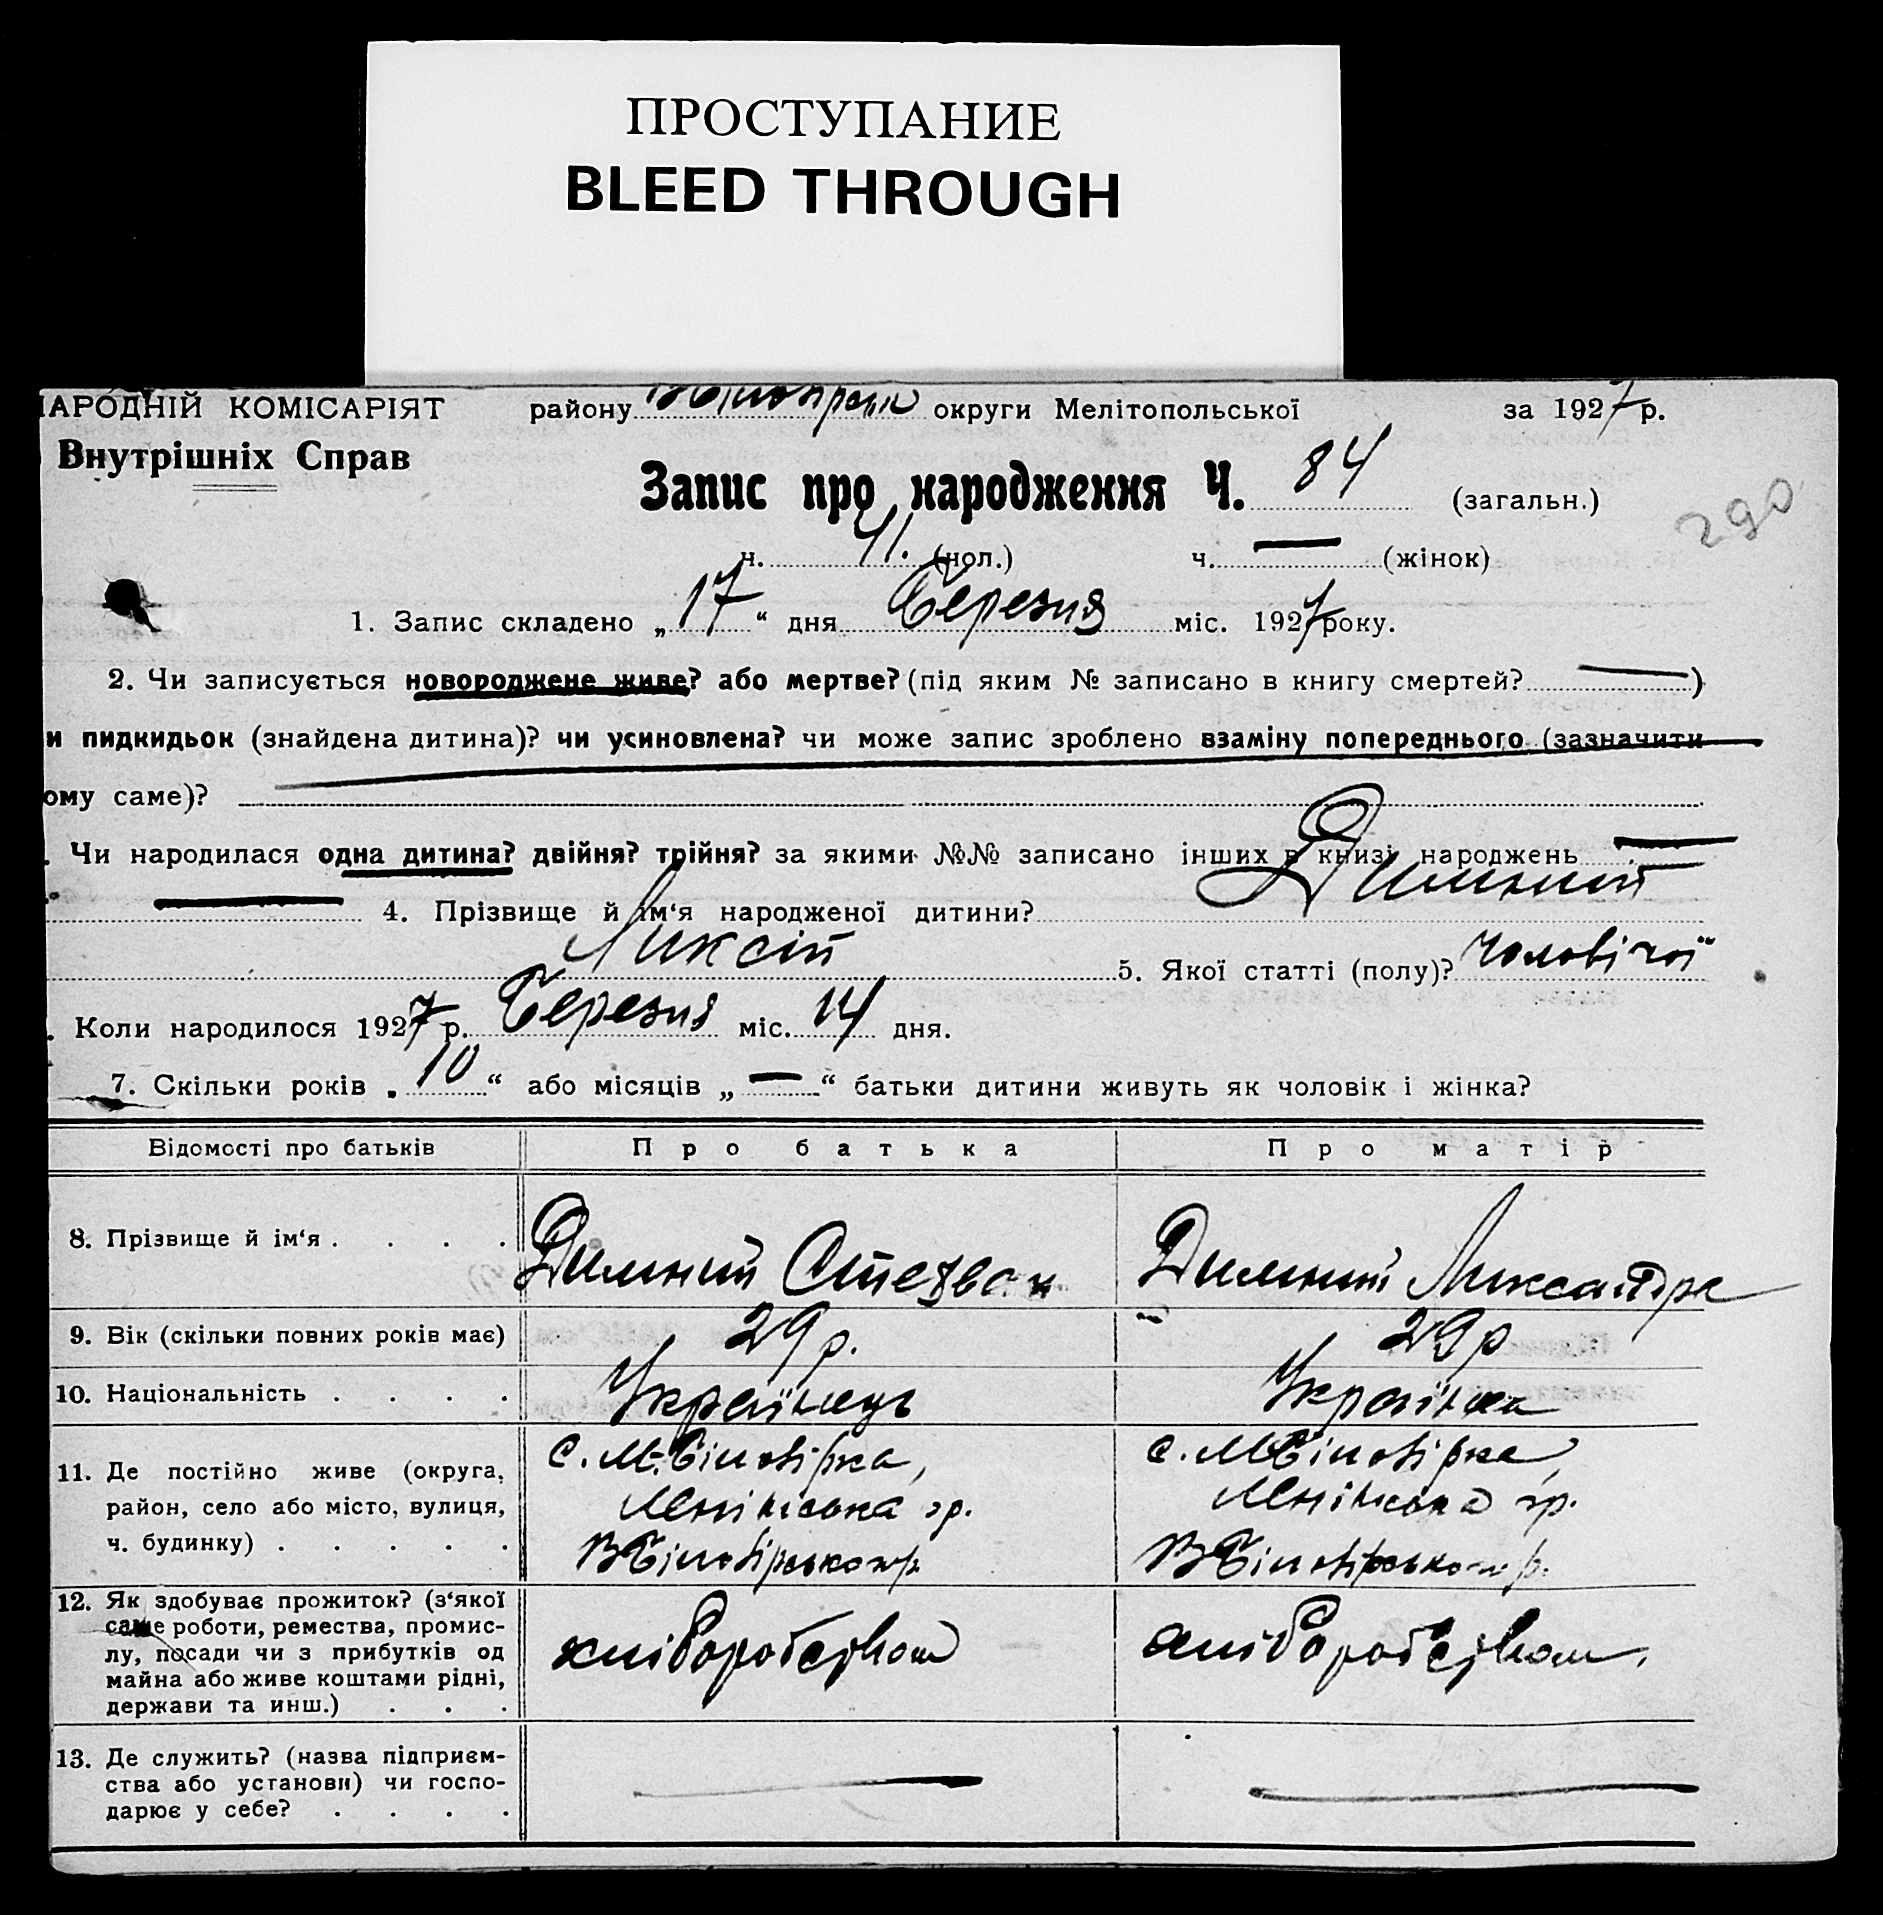 ПРОСТУПАНИЕ
BLEED THROUGH
НАРОДНІЙ КОМІСАРІЯТ району округи Мелітопольської за 1927 р.
Внутрішніх Справ
Запис про народження Ч. 84 (загальн.)
290
ч. 41. (чол.) ч. — (жінок)
1. Запис складено „17“ дня Березня міс. 1927 року.
2. Чи записується новороджене живе? або мертве? (під яким № записано в книгу смертей? — )
и пидкидьок (знайдена дитина)? чи усиновлена? чи може запис зроблено взаміну попереднього (зазначити
ому саме)?
. Чи народилася одна дитина? двійня? трійня? за якими №№ записано інших в книзі народжень —
— 4. Прізвище й ім‘я народженої дитини? Димний
Ликсій 5. Якої статті (полу)? чоловічої
. Коли народилося 1927 р. Березня міс. 14 дня.
7. Скільки років „10“ або місяців „—“ батьки дитини живуть як чоловік і жінка?
Відомості про батьків Про батька Про матір
8. Прізвище й ім‘я . . . . Димний Степан Димний Ликсандра
9. Вік (скільки повних років має) 29 р. 29 р
10. Національність . . . . Українець Українка
11. Де постійно живе (округа, с. М-Білозірка, с. МБілозірка,
район, село або місто, вулиця, Ленінська Ленінська
ч. будинку) . . . . .
12. Як здобуває прожиток? (з‘якої
саме роботи, ремества, промис-
лу, посади чи з прибутків од хліборобством хліборобством.
майна або живе коштами рідні,
держави та инш.) . . .
13. Де служить? (назва підприєм-
ства або установи) чи госпо- — —
дарює у себе? . . . .